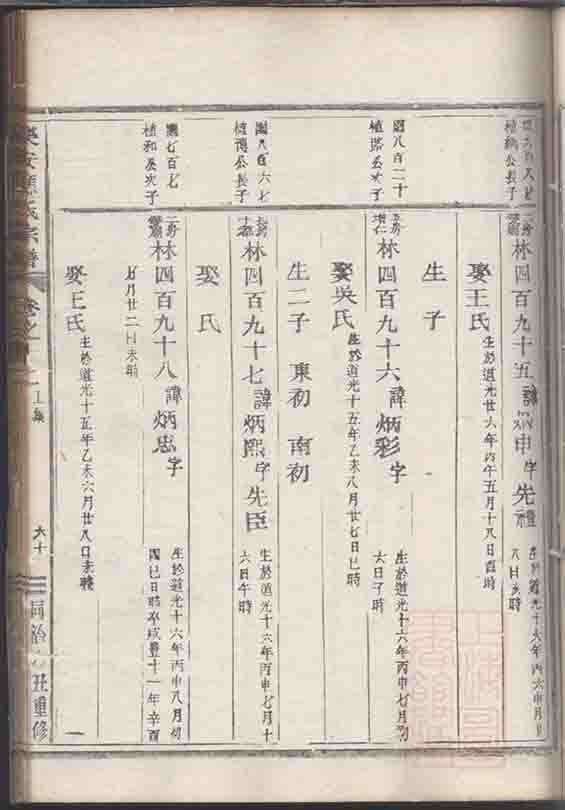 植�公長子
林四百九十五
諱
申
字
先禮
生於道光十六年丙申
八日亥時
娶王氏
生於道光廿六年丙午五月十八日酉時
生子
園八百二十
植
公次子
林四百九十六
諱
炳彩
字
生於道光十六年丙申七月初
六日子時
娶吳氏
生於道光十五年乙未八月廿七日巳時
生二子 東初 南初
園八百六七
植傳公長子
林四百九十七
諱
炳熙
字
先臣
生於道光十六年丙申七月十
六日午時
娶 氏
園七百七
植和公次子
林四百九十八
諱
炳忠
字
生於道光十六年丙申八月初
四巳日時卒咸豐十一年辛酉
七月廿二日未時
娶王氏
生於道光十五年乙未六月廿八日未時
樂安
氏宗譜
卷之
六十
同治
丑重修